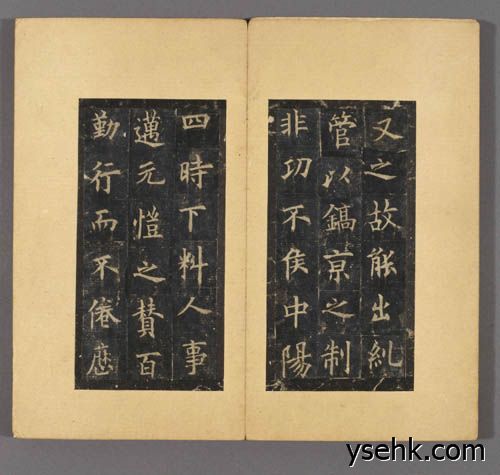 又之故能出糺
管以鎬京之制
非功不侯中陽
四時下料人事
邁元愷之賛百
勤行而不倦庶
ysehk.com